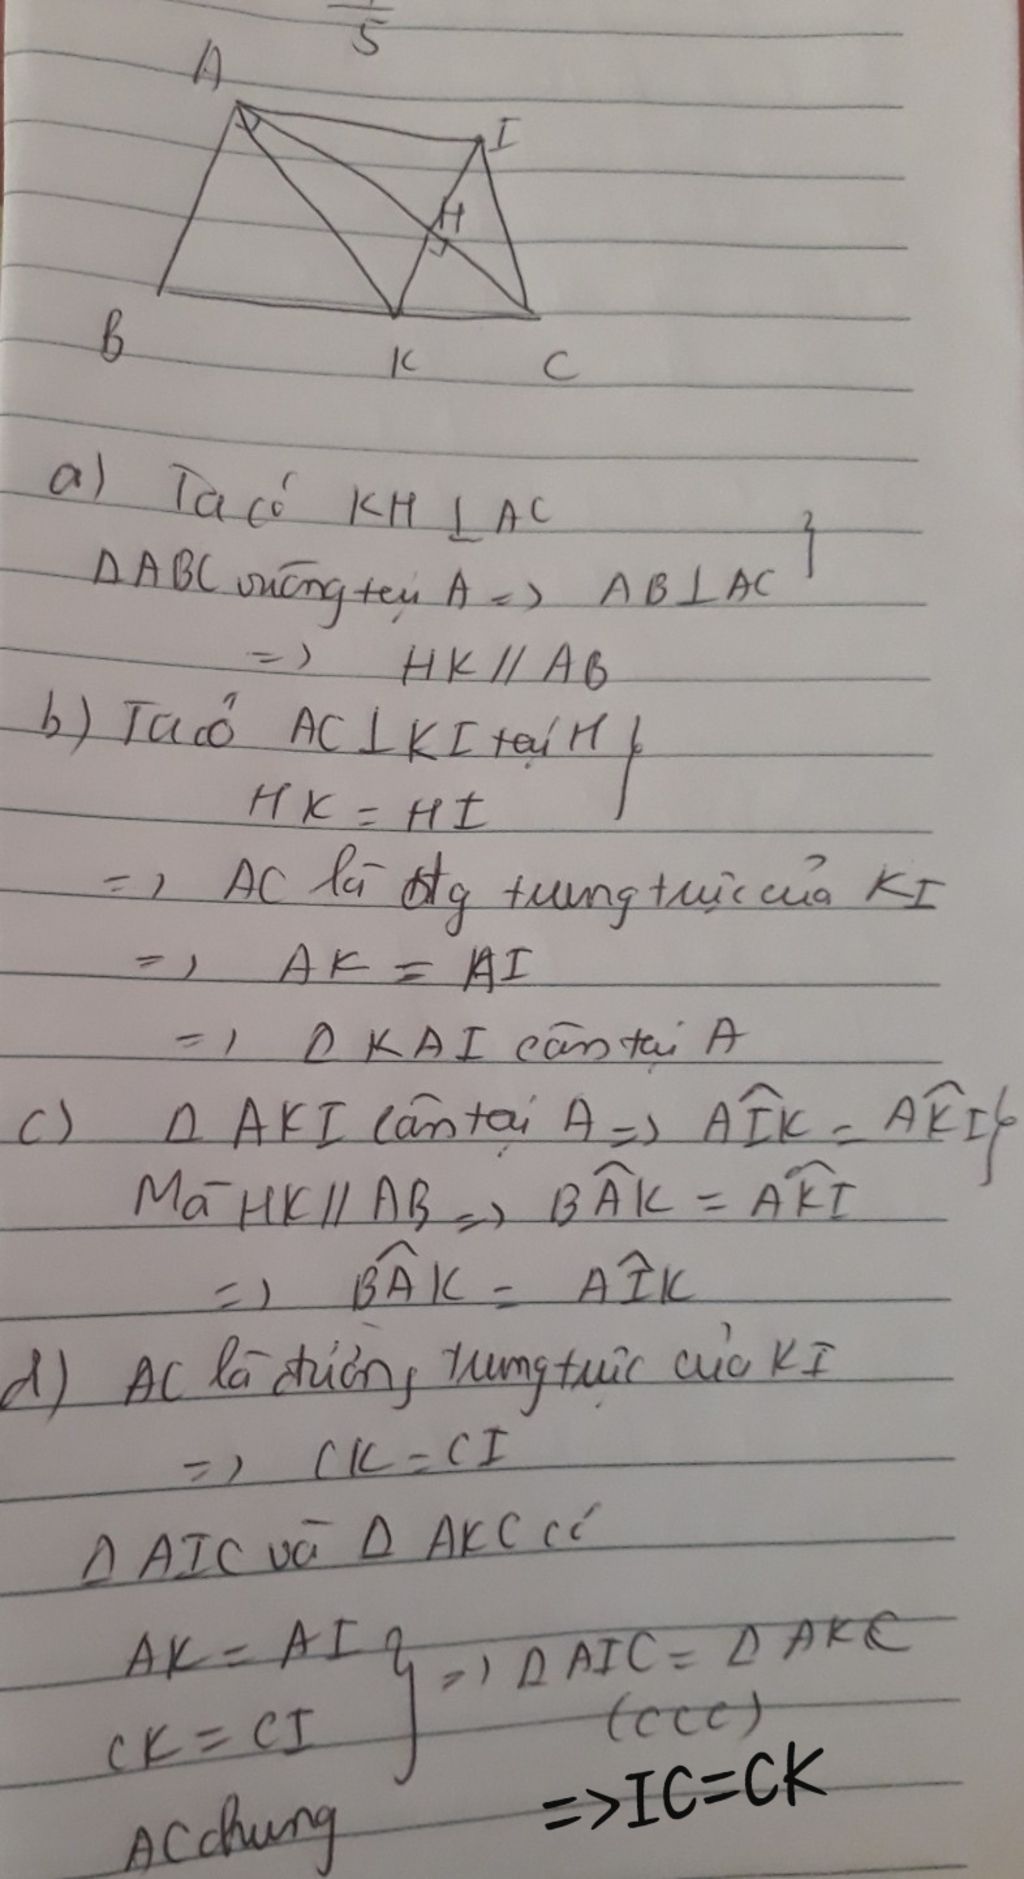 5
A
I
H
B
K
C
a) Ta có KH ⊥ AC }
ΔABC vuông tại A => AB ⊥ AC
=> HK // AB
b) Ta có AC ⊥ KI tại H }
HK = HI
=> AC là đg trung trực của KI
=> AK = AI
=> Δ KAI cân tại A
c) Δ AKI cân tại A => AÎK = AK̂I }
Mà HK // AB => BÂK = AK̂I
=> BÂK = AÎK
d) AC là đường trung trực của KI
=> CK = CI
Δ AIC và Δ AKC có
AK = AI } => Δ AIC = Δ AKC
CK = CI (ccc)
AC chung =>IC=CK